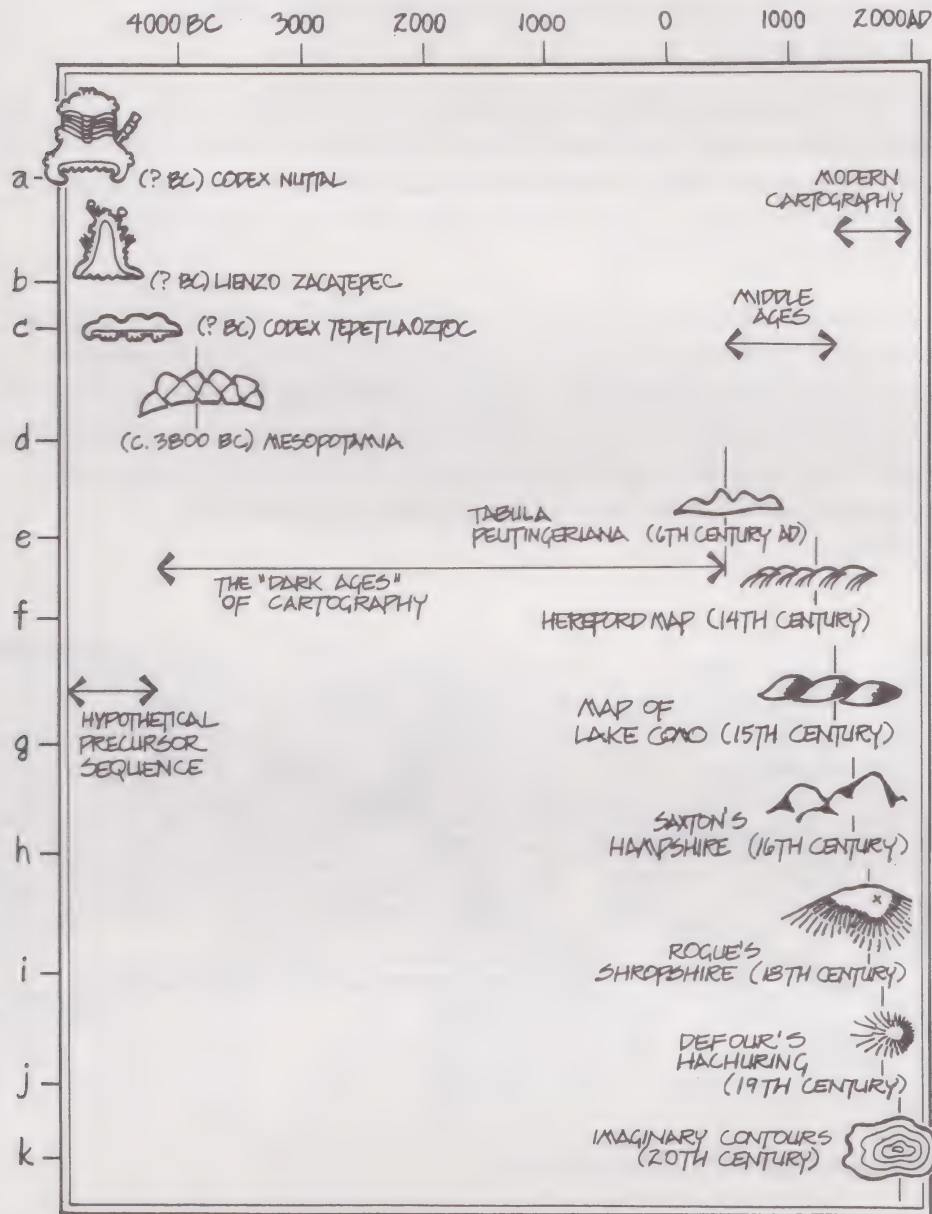 4000 BC 3000 2000 1000 0 1000 2000 AD
a
(? BC) CODEX NUTTAL
MODERN
CARTOGRAPHY
b
(? BC) LIENZO ZACATEPEC
MIDDLE
AGES
c
(? BC) CODEX TEPETLAOZTOC
d
(C. 3800 BC) MESOPOTAMIA
e
TABULA
PEUTINGERIANA (6TH CENTURY AD)
THE "DARK AGES"
OF CARTOGRAPHY
f
HEREFORD MAP (14TH CENTURY)
HYPOTHETICAL
PRECURSOR
SEQUENCE
g
MAP OF
LAKE COMO (15TH CENTURY)
h
SAXTON'S
HAMPSHIRE (16TH CENTURY)
x
i
ROGUE'S
SHROPSHIRE (18TH CENTURY)
j
DEFOUR'S
HACHURING
(19TH CENTURY)
k
IMAGINARY CONTOURS
(20TH CENTURY)